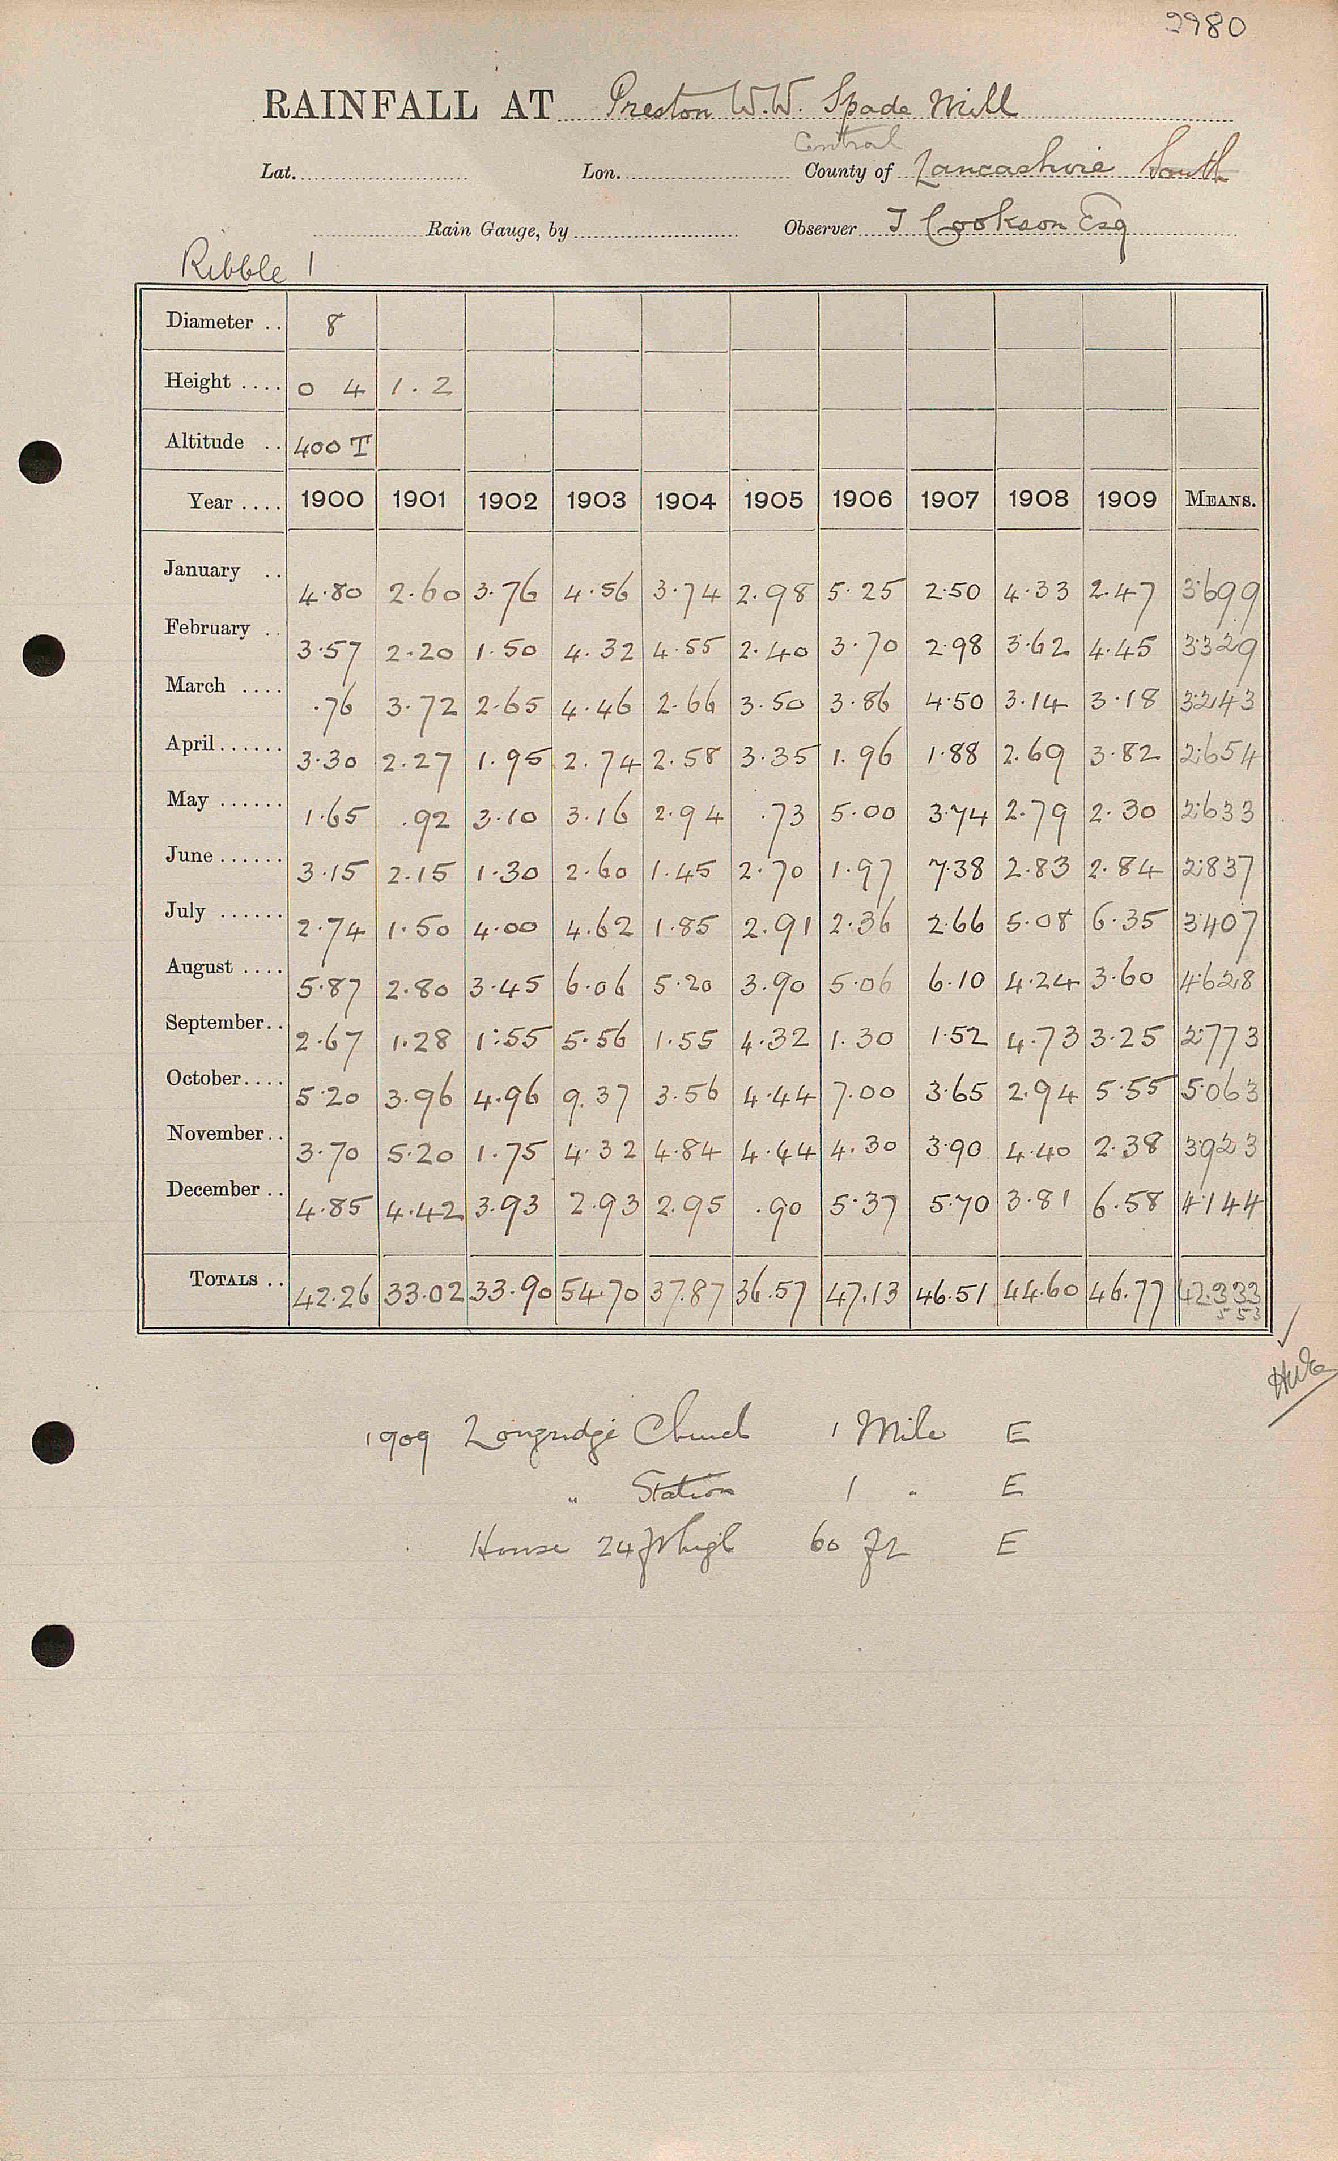 2980
RAINFALL AT Preston W.W. Spade Mill
Central
Lat. Lon. County of Lancashire South
Rain Gauge, by Observer T Cookson Esq
Ribble 1
Diameter .. 8
Height .... 0 4 1.2
Altitude .. 400 T
Year .... 1900 1901 1902 1903 1904 1905 1906 1907 1908 1909 MEANS.
January .. 4.80 2.60 3.76 4.56 3.74 2.98 5.25 2.50 4.33 2.47 3.699
February .. 3.57 2.20 1.50 4.32 4.55 2.40 3.70 2.98 3.62 4.45 3.329
March .... .76 3.72 2.65 4.46 2.66 3.50 3.86 4.50 3.14 3.18 3.243
April ...... 3.30 2.27 1.95 2.74 2.58 3.35 1.96 1.88 2.69 3.82 2.654
May ...... 1.65 .92 3.10 3.16 2.94 .73 5.00 3.74 2.79 2.30 2.633
June ...... 3.15 2.15 1.30 2.60 1.45 2.70 1.97 7.38 2.83 2.84 2.837
July ...... 2.74 1.50 4.00 4.62 1.85 2.91 2.36 2.66 5.08 6.35 3.407
August .... 5.87 2.80 3.45 6.06 5.20 3.90 5.06 6.10 4.24 3.60 4.628
September.. 2.67 1.28 1.55 5.56 1.55 4.32 1.30 1.52 4.73 3.25 2.773
October.... 5.20 3.96 4.96 9.37 3.56 4.44 7.00 3.65 2.94 5.55 5.063
November.. 3.70 5.20 1.75 4.32 4.84 4.44 4.30 3.90 4.40 2.38 3.923
December .. 4.85 4.42 3.93 2.93 2.95 .90 5.37 5.70 3.81 6.58 4.144
TOTALS .. 42.26 33.02 33.90 54.70 37.87 36.57 47.13 46.51 44.60 46.77 42.333
5 53
1909 Longridge Church 1 Mile E
" Station 1 " E
House 24 ft high 60 ft E